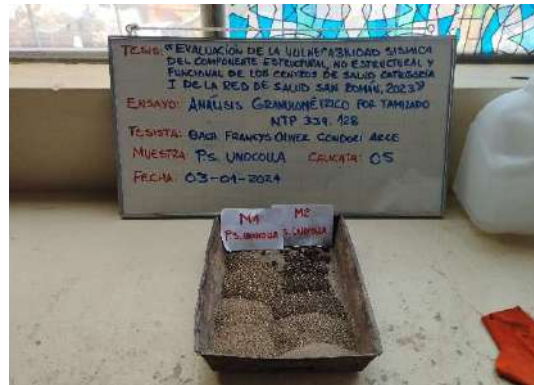 TESIS: "EVALUACIÓN DE LA VULNERABILIDAD SISMICA
DEL COMPONENTE ESTRUCTURAL, NO ESTRUCTURAL Y
FUNCIONAL DE LOS CENTROS DE SALUD CATEGORIA
I DE LA RED DE SALUD SAN ROMÁN, 2023"
ENSAYO: ANÁLISIS GRANULOMÉTRICO POR TAMIZADO
NTP 339.128
TESISTA: BACH FRANCYS OLIVER CONDORI ARCE
MUESTRA P.S. UNOCOLLA CALICATA: 05
FECHA: 03-01-2024
M1
P.S. UNOCOLLA
M2
S. UNOCOLLA